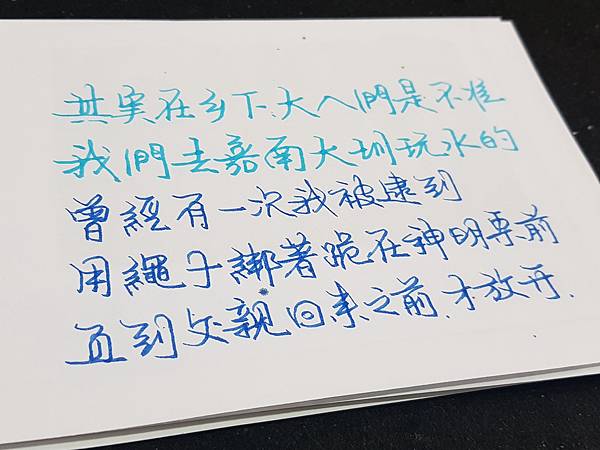 其实在乡下.大人們是不准
我們去嘉南大圳玩水的
曾經有一次我被逮到
用繩子綁著跪在神明桌前
直到父親回来之前.才放开.